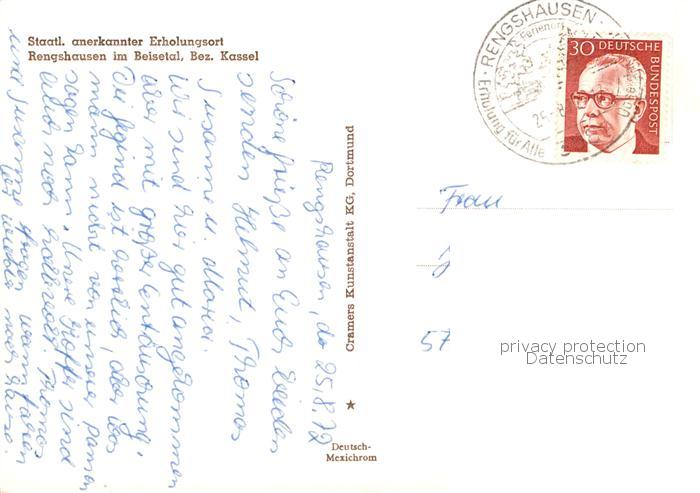 Staatl. anerkannter Erholungsort
Rengshausen im Beisetal, Bez. Kassel
Rengshausen, da 25.8.72
Schöne Grüße an Euch beiden
senden Helmut, Thomas
Susanne u. Maria.
Wir sind hier gut angekommen
aber mit großer Enttäuschung,
Die Gegend ist herrlich, aber das
man nicht von unserer
sagen kann. Unsere Koffer sind
alles noch halbvoll. Thomas
und Susanne fragen wann fahren
wir wieder nach Hause.
Cramers Kunstanstalt KG, Dortmund
Deutsch-
Mexichrom
RENGSHAUSEN
Ferienort
Erholung für Alle
30 DEUTSCHE
BUNDESPOST
Frau
J
57
privacy protection
Datenschutz